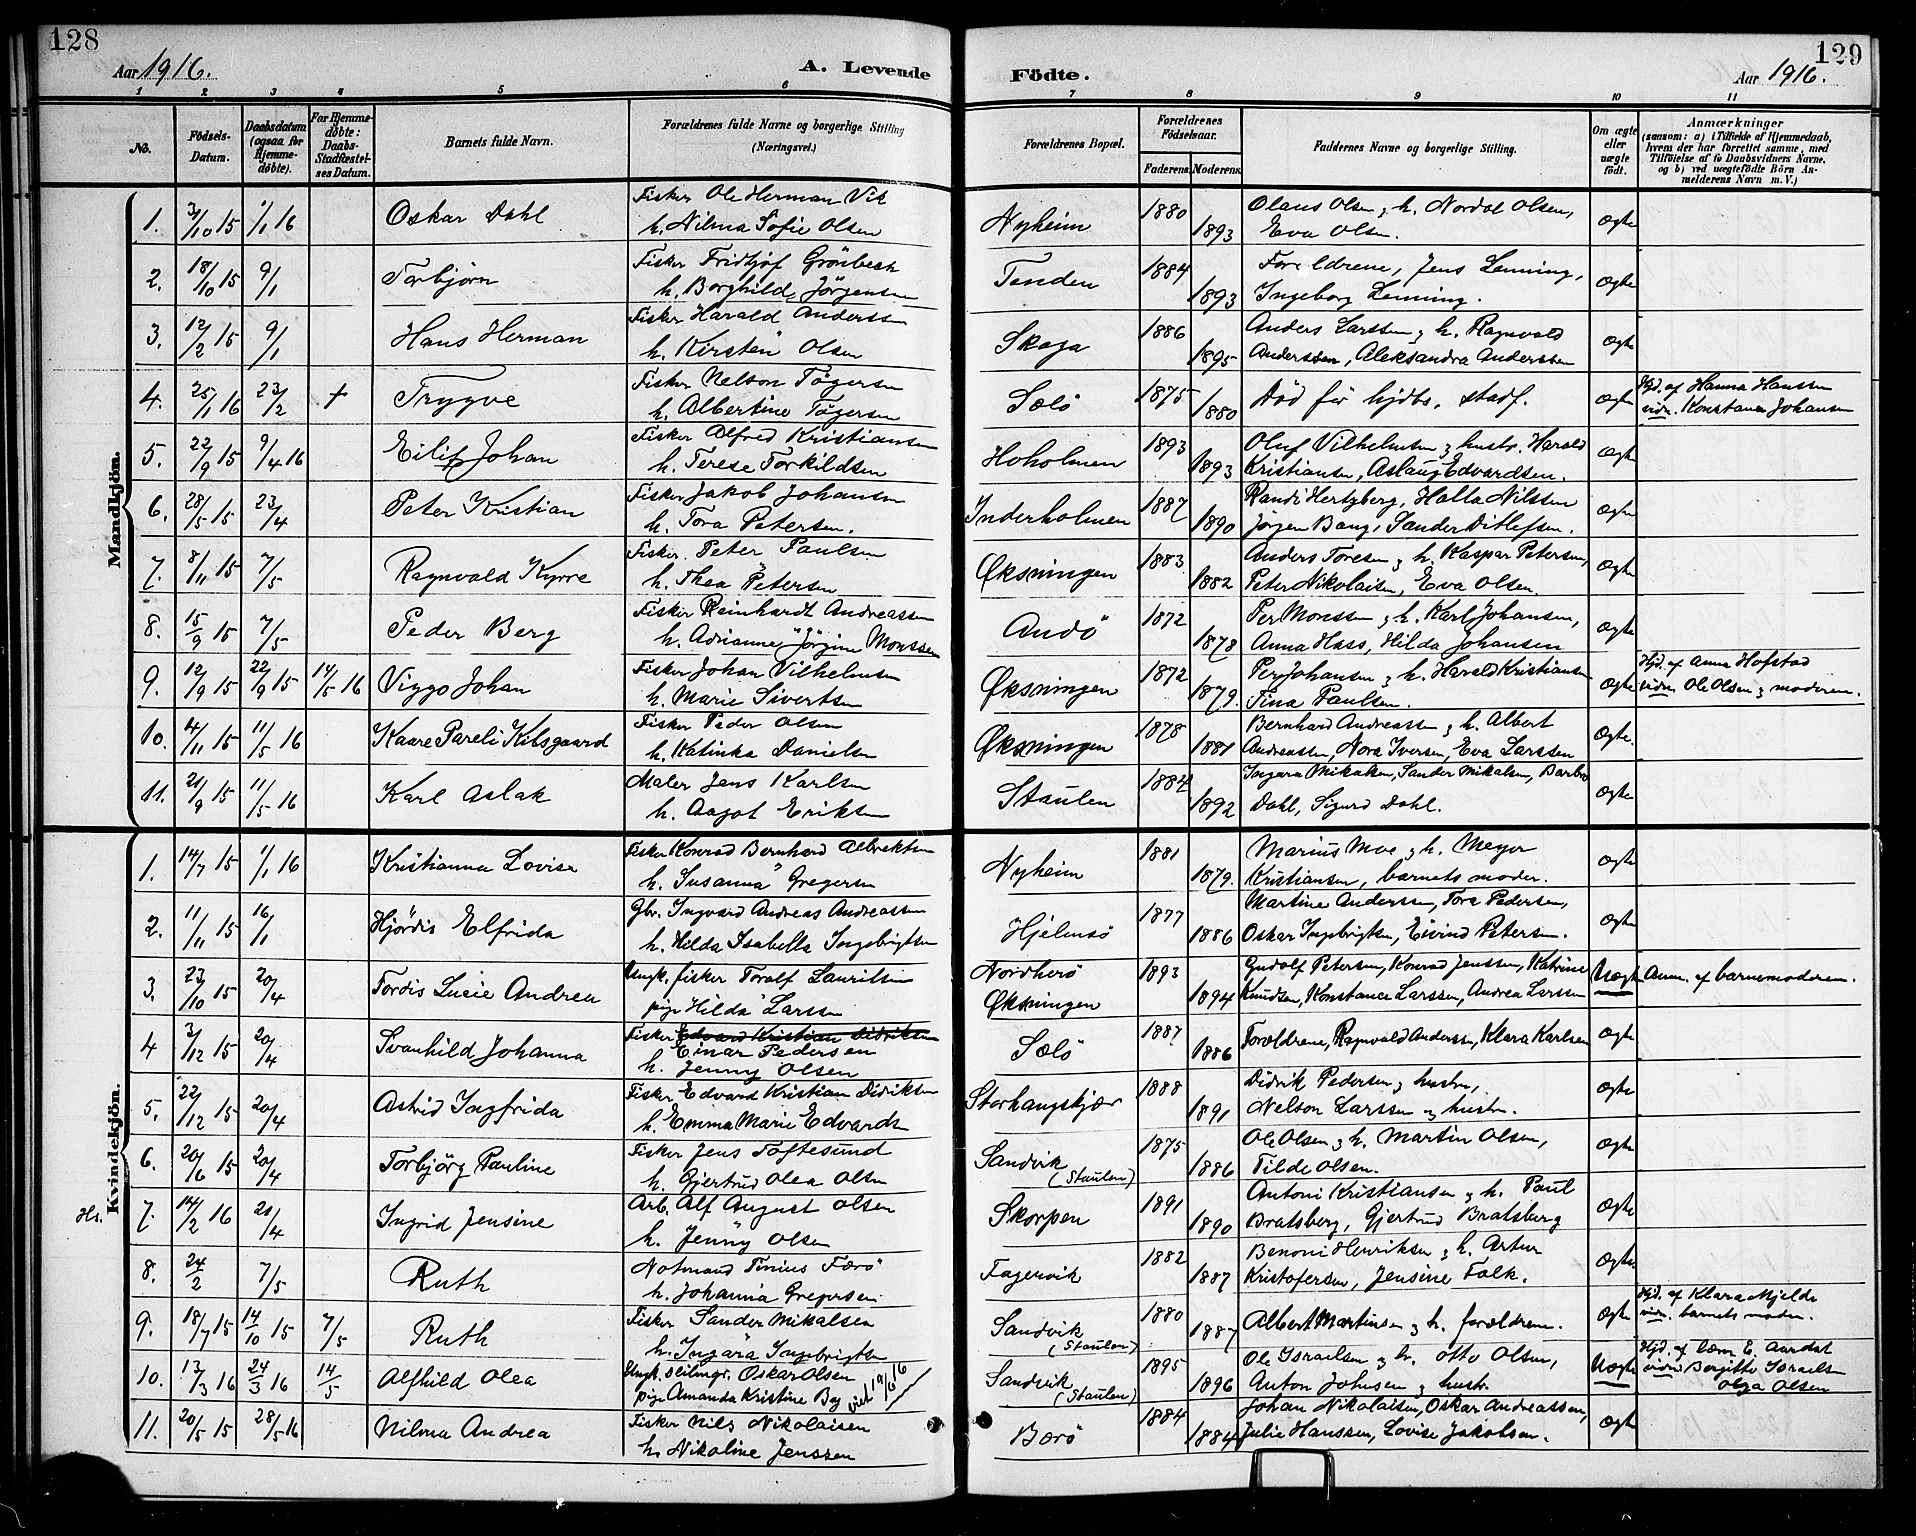 128
Aar 1916.
A. Levende
Födte.
129
Aar 1916.
1 2 3 4 5 6 7 8 9 10 11
No.
Födsels-Datum.
Daabsdatum (ogsaa for Hjemmedöbte).
For Hjemmedöbte: Daabs-Stadfæstelses Datum.
Barnets fulde Navn.
Forældrenes fulde Navne og borgerlige Stilling (Næringsvei.)
Forældrenes Bopæl.
Forældrenes Födselsaar.
Faderens. Moderens.
Faddernes Navne og borgerlige Stilling.
Om ægte eller uægte födt.
Anmærkninger (saasom: a) i Tilfælde af Hjemmedaab, hvem der har forrettet samme, med Tilföielse af to Daabsvidners Navne, og b) ved uægtefödte Börn Anmelderens Navn m. V.)
Mandkjön.
1. 3/10 15 1/1 16 Oskar Dahl Fisker Ole Herman Vik Nyheim 1880 Olaus Olsen & h. Nordal Olsen, Ægte
h. Nilma Sofie Olsen 1893 Eva Olsen.
2. 18/10 15 9/1 Torbjørn Fisker Fridtjof Grönbech Tenden 1884 Forældrene, Jens Lenning, Ægte
h. Borghild Jörgensen 1893 Ingeborg Lenning.
3. 12/2 15 9/1 Hans Herman Fisker Harald Anderssen Skaga 1886 Anders Larssen & h. Ragnvald Ægte
h. Kirsten Olsen 1895 Anderssen, Aleksandra Anderssen
4. 25/1 16 23/2 + Trygve Fisker Nelson Tögersen Sælö 1875 Död för hjdbs. stadf. Ægte Hjd. af Hanna Hanssen
h. Albertine Tögersen 1880 vidn. Konstance Johansen
5. 22/9 15 9/4 16 Eilif Johan Fisker Alfred Kristiansen Hoholmen 1893 Oluf Vilhelmsen & hustr. Harald Ægte
h. Terese Torkildsen 1893 Kristiansen, Aslaug Edvardsen.
6. 28/5 15 23/4 Peter Kristian Fisker Jakob Johansen Inderholmen 1887 Randi Hertzberg, Halla Nilssen Ægte
h. Tora Petersen. 1890 Jörgen Bang, Sander Ditlefsen.
7. 8/11 15 7/5 Ragnvald Kyrre Fisker Peter Paulsen Øksningen 1883 Anders Toresen & h. Kaspar Petersen, Ægte
h. Thea Petersen 1882 Peter Nikolaisen, Eva Olsen
8. 15/9 15 7/5 Peder Berg Fisker Reinhardt Andreassen Andö 1872 Per Monssen & h. Karl Johansen, Ægte
h. Adrianne Jörgine Monssen 1878 Anna Hass, Hilda Johansen
9. 12/9 15 22/9 15 14/5 16 Viggo Johan Fisker Johan Vilhelmsen Øksningen 1872 Per Johansen & h. Harald Kristiansen Ægte Hjd. af Anna Hofstad
h. Marie Sivertsen 1879. Tina Paulsen. vidn. Ole Olsen & moderen.
10. 4/11 15 11/5 16 Kaare Pareli Kilsgaard Fisker Peder Olsen Øksningen 1878 Bernhard Andreassen & h. Albert Ægte.
h. Katinka Danielsen 1881 Andreassen, Nora Iversen, Eva Larssen
11. 21/9 15 11/5 16 Karl Aslak Maler Jens Karlsen Staulen 1884 Ingara Mikalsen, Sander Mikalsen, Barbro Ægte
h. Aagot Eriksen 1892 Dahl, Sigurd Dahl.
Kvindekjön.
1. 14/7 15 1/1 16 Kristianna Lovise Fisker Konrad Bernhard Albrektsen Nyheim 1881 Marius Moe & h. Meyer Ægte
h. Susanna Gregersen 1879. Kristiansen, barnets moder.
2. 11/11 15 16/1 Hjördis Elfrida Gbr. Ingvard Andreas Andreassen Hjelmsö 1877 Martine Anderssen, Tora Pedersen, Ægte
h. Hilda Isabella Ingebrigtsen 1886 Oskar Ingebrigtsen, Eivind Petersen.
3. 23/10 15 20/4 Tordis Lucie Andrea Ungk. fisker Toralf Lauritsen Nordherö 1893 Gudolf Petersen, Konrad Jenssen, Katrine Uægte Anm. af barnemoderen.
pige Hilda Larssen Øksningen 1894 Knudsen, Konstance Larssen, Andrea Larssen
4 3/12 15 20/4 Svanhild Johanna Fisker Edvard Kristian Didriksen Sælö 1887 Forældrene, Ragnvald Anderssen, Klara Karlsen Ægte
Einar Pedersen
h. Jenny Olsen 1886
5. 22/12 15 20/4 Astrid Ingfrida Fisker Edvard Kristian Didriksen Storhaugskjær 1888 Didrik Pedersen & hustru, Ægte
h. Emma Marie Edvardsen 1891 Nelson Larssen & hustru.
6. 20/6 15 20/4 Torbjörg Pauline Fisker Jens Toftesund Sandvik (Staulen) 1875 Ole Olsen & h. Martin Olsen, Ægte
h. Gjertrud Olea Olsen 1886 Tilde Olsen.
Hs. 7. 14/2 16 21/4 Ingrid Jensine Arb. Alf August Olsen Skorpen 1891 Antoni Kristiansen & h. Paul Ægte
h. Jenny Olsen 1890 Bratsberg, Gjertrud Bratsberg
8. 24/2 7/5 Ruth Notmand Tinius Færö Fagervik 1882 Benoni Henriksen & h. Artur Ægte
h. Johanna Gregersen 1887 Kristofersen, Jensine Falk.
9. 18/7 15 14/10 15 7/5 Ruth Fisker Sander Mikalsen Sandvik (Staulen) 1880 Albert Martinsen & h. forældrene. Ægte Hjd. af Klara Mjelde
h. Ingara Ingebrigtsen 1887 vidn. barnets moder.
10. 13/3 16 24/3 16 14/5 Alfhild Olea Ungk. Oskar Olsen Sandvik (Staulen) 1895 Ole Israelsen & h. Otto Olsen, Uægte Hjd. af E. Aardal
pige Amanda Kristine Berg viet 19/6 16 1896 Anton Johnsen & hustr. vidn. Bergitte Israelsen
Olga Olsen
11. 20/5 15 28/5 16 Nilma Andrea Fisker Nils Nikolaisen Bærö 1884 Johan Nikolaisen, Oskar Andreassen, Ægte
h. Nikoline Jenssen 1884 Julie Hanssen, Lovise Jakobsen.